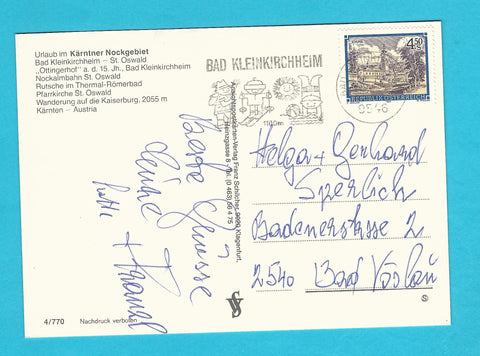 Urlaub im Kärntner Nockgebiet
Bad Kleinkirchheim – St. Oswald
„Ottingerhof" a. d. 15. Jh., Bad Kleinkirchheim
Nockalmbahn St. Oswald
Rutsche im Thermal-Römerbad
Pfarrkirche St. Oswald
Wanderung auf die Kaiserburg, 2055 m
Kärnten – Austria
BAD KLEINKIRCHHEIM
1100m
4.50
REPUBLIK ÖSTERREICH
9546
Franz Schilcher, 9020 Klagenfurt,
Beste Grüsse
+ Franzl
Helga + Gerhard
Sperlich
Badenerstrasse 2
2540 Bad Vöslau
4/770 Nachdruck verboten